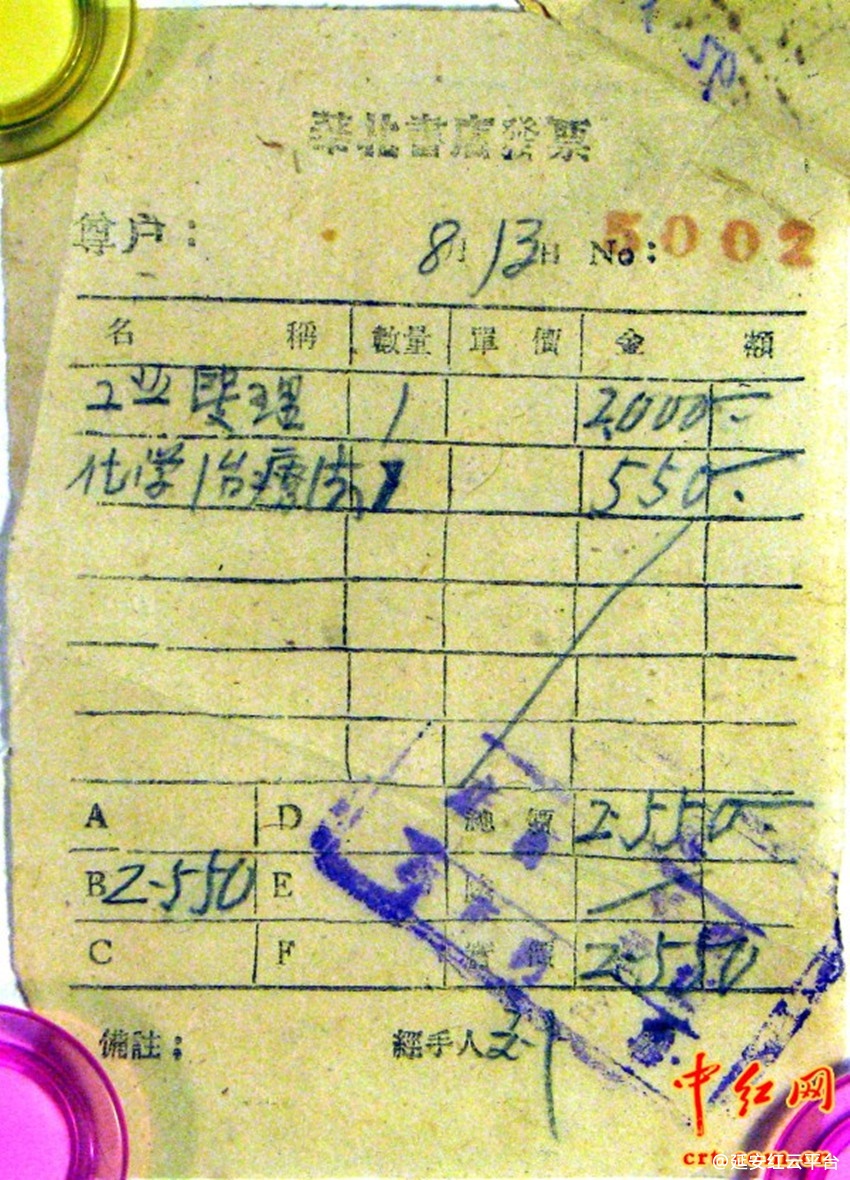 50
華北書店發票
尊户：
8月13日 No：5002
名稱 數量 單價 金額
工业 理 1 2,000-
化学治療法 1 550-
A D 總額 2550-
B 2550 E
C F 實價 2550
備註： 經手人
中红网
crt.com.cn
@延安红云平台